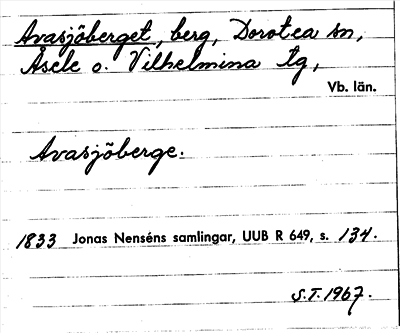 Avasjöberget, berg, Dorotea sn,
Åsele o. Vilhelmina tg,
Vb. län.
Avasjöberge.
1833 Jonas Nenséns samlingar, UUB R 649, s. 134.
S.T. 1967.